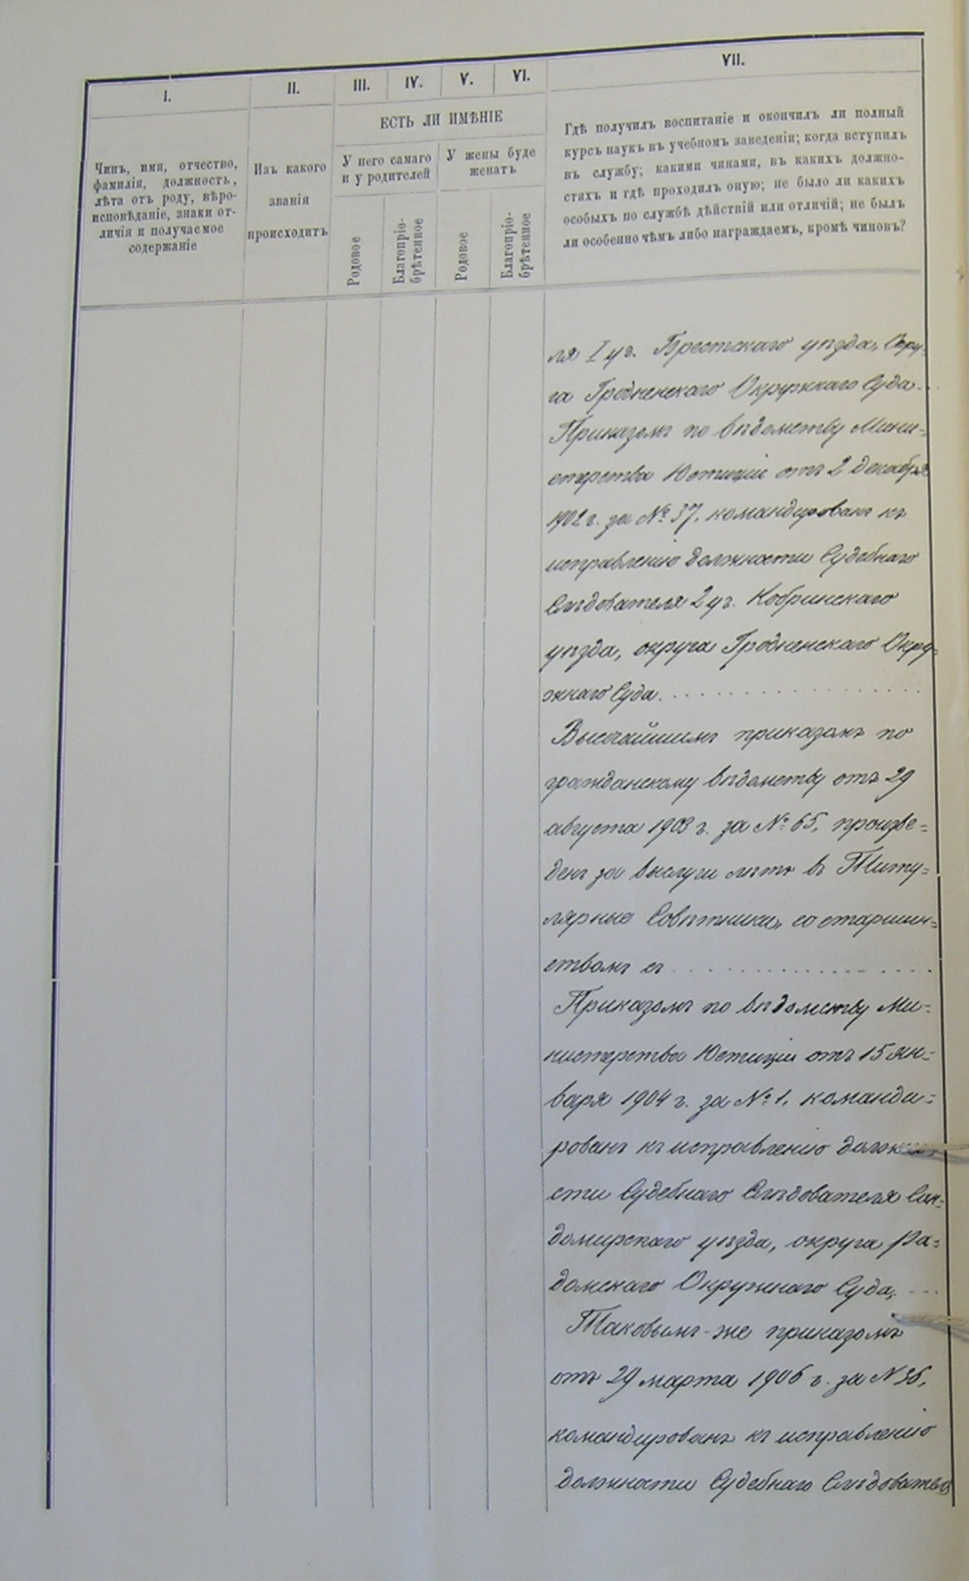 I.
II.
III.
IV.
V.
VI.
VII.
ЕСТЬ ЛИ ИМѢНІЕ
Чинъ, имя, отчество,
фамилія, должность,
лѣта отъ роду, вѣро-
исповѣданіе, знаки от-
личія и получаемое
содержаніе
Изъ какого
званія
происходитъ
У него самаго
и у родителей
У жены буде
женатъ
Родовое
Благопріо-
брѣтенное
Родовое
Благопріо-
брѣтенное
Гдѣ получилъ воспитаніе и окончилъ ли полный
курсъ наукъ въ учебномъ заведеніи; когда вступилъ
въ службу; какими чинами, въ какихъ должно-
стяхъ и гдѣ проходилъ оную; не было ли какихъ
особыхъ по службѣ дѣйствій или отличій; не былъ
ли особенно чѣмъ либо награждаемъ, кромѣ чиновъ?
ля I уч. Брестскаго уѣзда, Окру-
га Гродненскаго Окружнаго Суда...
Приказомъ по вѣдомству Мини-
стерства Юстиціи отъ 2 декабря
1902 г. за № 37, командированъ къ
исправленію должности Судебнаго
Слѣдователя 2 уч. Кобринскаго
уѣзда, округа Гродненскаго Окру-
жнаго Суда. . . . . . . . . . . . . . . .
Высочайшимъ приказомъ по
гражданскому вѣдомству отъ 29
августа 1903 г. за № 65, произве=
денъ за выслугу лѣтъ въ Титу=
лярные Совѣтники, со старшин=
ствомъ съ . . . . . . . . . . . . . . . .
Приказомъ по вѣдомству Ми=
нистерства Юстиціи отъ 15 ян=
варя 1904 г. за № 1, команди=
рованъ къ исправленію должно-
сти Судебнаго Слѣдователя Сан=
домирскаго уѣзда, округа Ра=
домскаго Окружнаго Суда, ...
Таковымъ-же приказомъ
отъ 29 марта 1906 г. за N 36,
командированъ къ исправленію
должности Судебнаго Слѣдователя